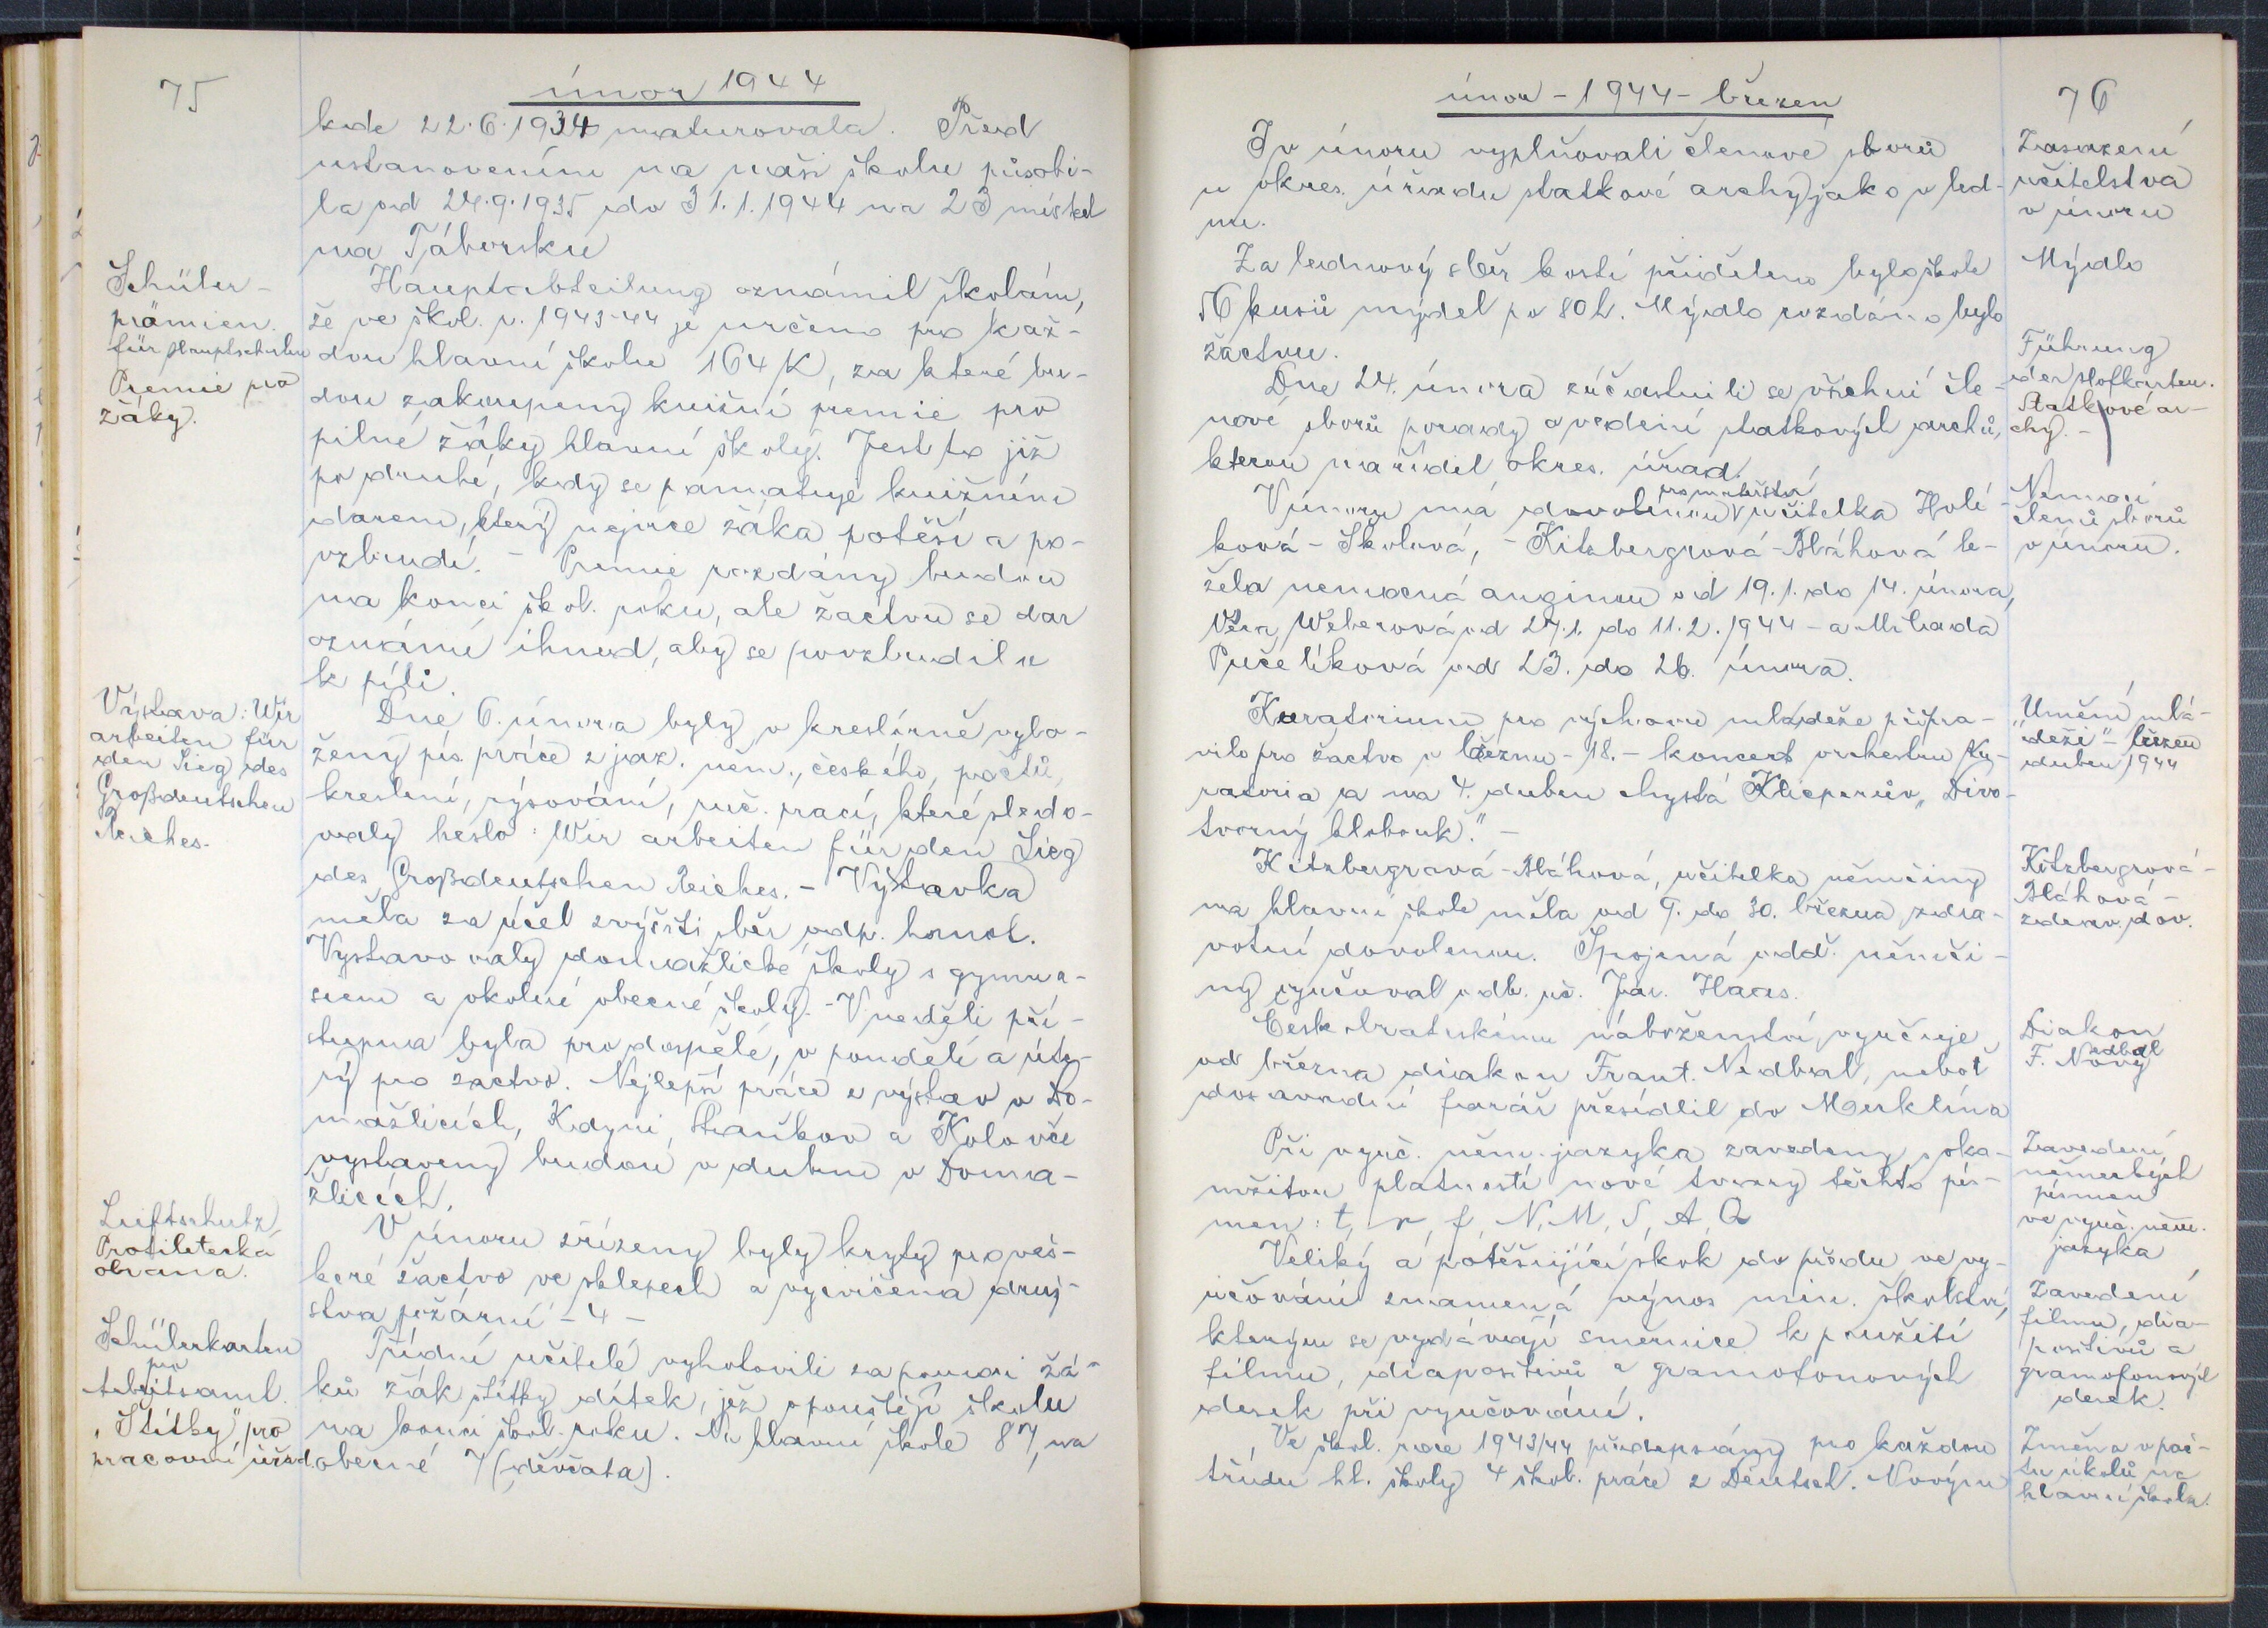 75
únor 1944
kde 22.6.1934 maturovala. Před
ustanovením na naši školu působi-
la od 24.9.1935 do 31.1.1944 na 23 místech
na Táborsku
Schüler-
prämien
für Hauptschulen
Premie pro
žáky.
Hauptabteilung oznámil školám,
že ve škol. r. 1943-44 je určeno pro kaž-
dou hlavní školu 164 K, za které bu-
dou zakoupeny knižní premie pro
pilné žáky hlavní školy. Jest to již
po druhé, kdy se pamatuje knižním
darem, který nejvíce žáka potěší a po-
vzbudí. - Premie rozdány budou
na konci škol. roku, ale žactvu se dar
oznámí ihned, aby se povzbudilo
k píli.
Výstava: Wir
arbeiten für
den Sieg des
Großdeutschen
Reiches.
Dne 6. února byly v kreslírně vylo-
ženy pís. práce z jaz. něm., českého, počtů,
kreslení, rýsování, ruč. prací, které sledo-
valy heslo: Wir arbeiten für den Sieg
des Großdeutschen Reiches. - Výstavka
měla za účel zvýšiti sběr odp. hmot.
Vystavovaly domažlické školy s gymna-
siem a okolní obecné školy. - V neděli pří-
stupna byla pro dospělé, v pondělí a úte-
rý pro žactvo. Nejlepší práce z výstav v Do-
mažlicích, Kdyni, Staňkov a Koloveč
vystaveny budou v dubnu v Doma-
žlicích.
Luftschutz
Protiletecká
obrana.
V únoru zřízeny byly kryty pro veš-
keré žactvo ve sklepech a vycvičena druž-
stva požární - 4 -
Schülerkarten
für
Arbeitsamt.
"Štítky" pro
pracovní úřad.
Třídní učitelé vyhotovili za pomoci žá-
ků žák. štítky dítek, jež opouštějí školu
na konci škol. roku. Na hlavní škole 87, na
obecné 7 (děvčata).
únor - 1944 - březen
76
I v únoru vyplňovali členové sborů
u okres. úřadu statkové archy jako v led-
nu.
Zasazení
učitelstva
v únoru
Za lednový sběr kostí přiděleno bylo škole
56 kusů mýdel po 80 h. Mýdlo rozdáno bylo
žactvu.
Mýdlo
Dne 24. února zúčastnili se všichni čle-
nové sborů porady o vedení statkových archů,
kterou nařídil okres. úřad.
Führung
der Hofkarten.
Statkové ar-
chy. -
V únoru má dovolenou pro mateřství učitelka Holí-
ková - Školová, - Kitzbergrová-Bláhová le-
žela nemocná anginou od 19.1. do 14. února,
Věra Weberová od 27.1. do 11.2.1944 - a Milada
Pučelíková od 23. do 26. února.
Nemoci
členů sborů
v únoru.
Kuratorium pro výchovu mládeže připra-
vilo pro žactvo v březnu - 18. - koncert orchestru Ku-
ratoria a na 4. duben chystá Klicperův "Divo-
tvorný klobouk." -
"Umění mlá-
deži" - březen
duben 1944
Kitzbergrová-Bláhová, učitelka němčiny
na hlavní škole měla od 9. do 30. března zdra-
votní dovolenou. Spojená odd. němči-
ny vyučoval odb. uč. Jar. Haas.
Kitzbergrová-
Bláhová -
zdrav. dov.
Českobratrskému náboženství vyučuje
od března diakon Frant. Nedbal, neboť
dosavadní farář přesídlil do Merklína
Diakon
F. Nový Nedbal
Při vyuč. něm. jazyka zavedeny s oka-
mžitou platností nové tvary těchto pís-
men: t, r, f, N, M, S, A, Q
Zavedení
německých
písmen
ve vyuč. něm.
jazyka
Veliký a potěšující skok do předu ve vy-
učování znamená výnos min. školství,
kterým se vydávají směrnice k použití
filmu, diapositivů a gramofonových
desek při vyučování.
Zavedení
filmu, dia-
positivů a
gramofonových
desek.
Ve škol. roce 1943/44 předepsány pro každou
třídu hl. školy 4 škol. práce z Deutsch. Novým
Změna v poč-
tu úkolů na
hlavní škole.